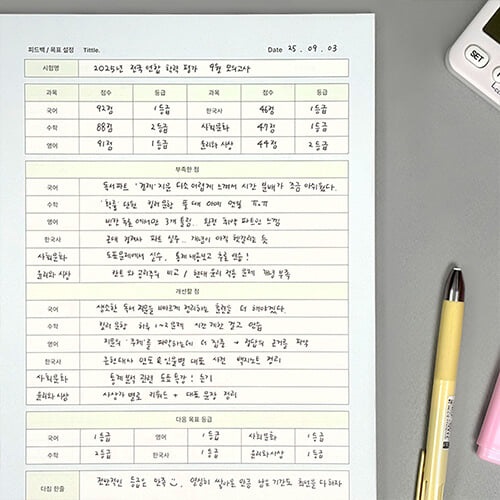 피드백 / 목표 설정 Tittle. Date 25 . 09 . 03
시험명 2025년 전국 연합 학력 평가 9월 모의고사
과목 점수 등급 과목 점수 등급
국어 92점 1등급 한국사 46점 1등급
수학 88점 2등급 사회문화 47점 1등급
영어 91점 1등급 윤리와 사상 44점 2등급
부족한 점
국어 독서파트 '경제' 지문 다소 어렵게 느껴져 시간 분배가 조금 아쉬웠다.
수학 '확률' 단원 킬러문항 풀 때 아예 막힘 ㅠㅠ
영어 빈칸 추론에서만 3개 틀림.. 완전 취약 파트인 느낌
한국사 근대 정치사 파트 실수.. 개념이 아직 헷갈리는 듯
사회문화 도표문제에서 실수. 통계 내용보고 추론 연습!
윤리와 사상 칸트와 공리주의 비교 / 현대 윤리 적용 문제 개념 부족
개선할 점
국어 생소한 독서 지문을 빠르게 정리하는 훈련을 더 해야겠다.
수학 킬러 문항 하루 1~2문제 시간 제한 걸고 연습
영어 지문의 '주제'를 파악하는데 더 집중 → 정답의 근거를 파악
한국사 근현대사 연도 & 인물별 대표 사건 백지노트 정리
사회문화 통계 분석 관련 도표 특강! 듣기
윤리와 사상 사상가 별로 키워드 + 대표 문장 정리
다음 목표 등급
국어 1등급 영어 1등급 사회문화 1등급
수학 2등급 한국사 1등급 윤리와사상 1등급
다짐 한줄 전반적인 등급은 만족 열심히 쌓아온 만큼 남은 기간도 최선을 다하자
SET